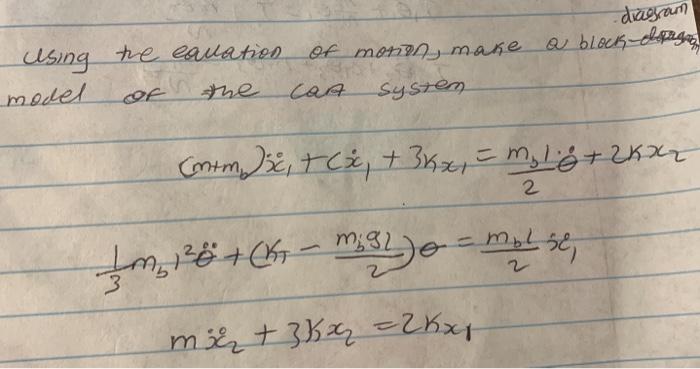 diagram
Using the equation of motion, make a block
model of the cart system
(m+m_b)ẍ₁ + cẋ₁ + 3Kx₁ = m_b l/2 θ̈ + 2Kx₂
1/3 m_b l² θ̈ + (K_T − m_b g l/2)θ = m_b l/2 ẍ₁
mẍ₂ + 3Kx₂ = 2Kx₁